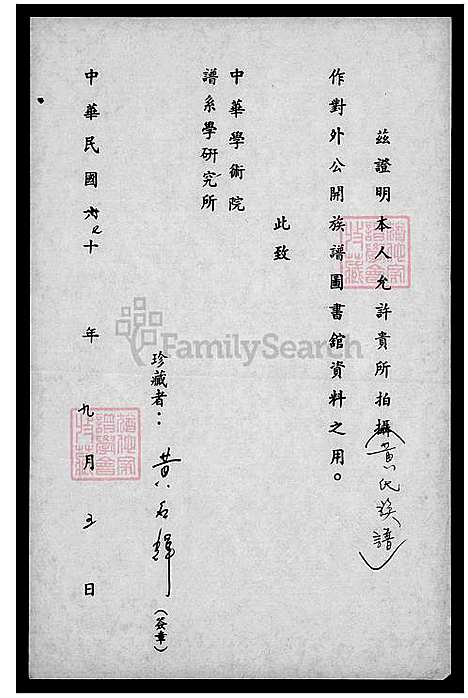 茲證明本人允許貴所拍攝(黃氏族譜)
作對外公開族譜圖書館資料之用。
此致
中華學術院
譜系學研究所
珍藏者：黃石輝(簽章)
中華民國七十年九月五日
FamilySearch